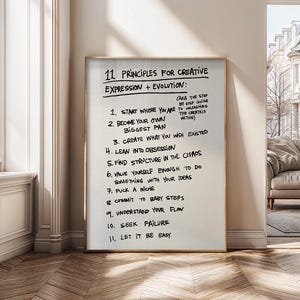 11 PRINCIPLES FOR CREATIVE
EXPRESSION + EVOLUTION:
(AKA THE STEP
BY STEP GUIDE
TO UNLEASHING
THE CREATIVE
WITHIN)
1. START WHERE YOU ARE
2. BECOME YOUR OWN
BIGGEST FAN
3. CREATE WHAT YOU WISH EXISTED
4. LEAN INTO OBSESSION
5. FIND STRUCTURE IN THE CHAOS
6. VALUE YOURSELF ENOUGH TO DO
SOMETHING WITH YOUR IDEAS
7. FUCK A NICHE
8. COMMIT TO BABY STEPS
9. UNDERSTAND YOUR FLOW
10. SEEK FAILURE
11. LET IT BE EASY